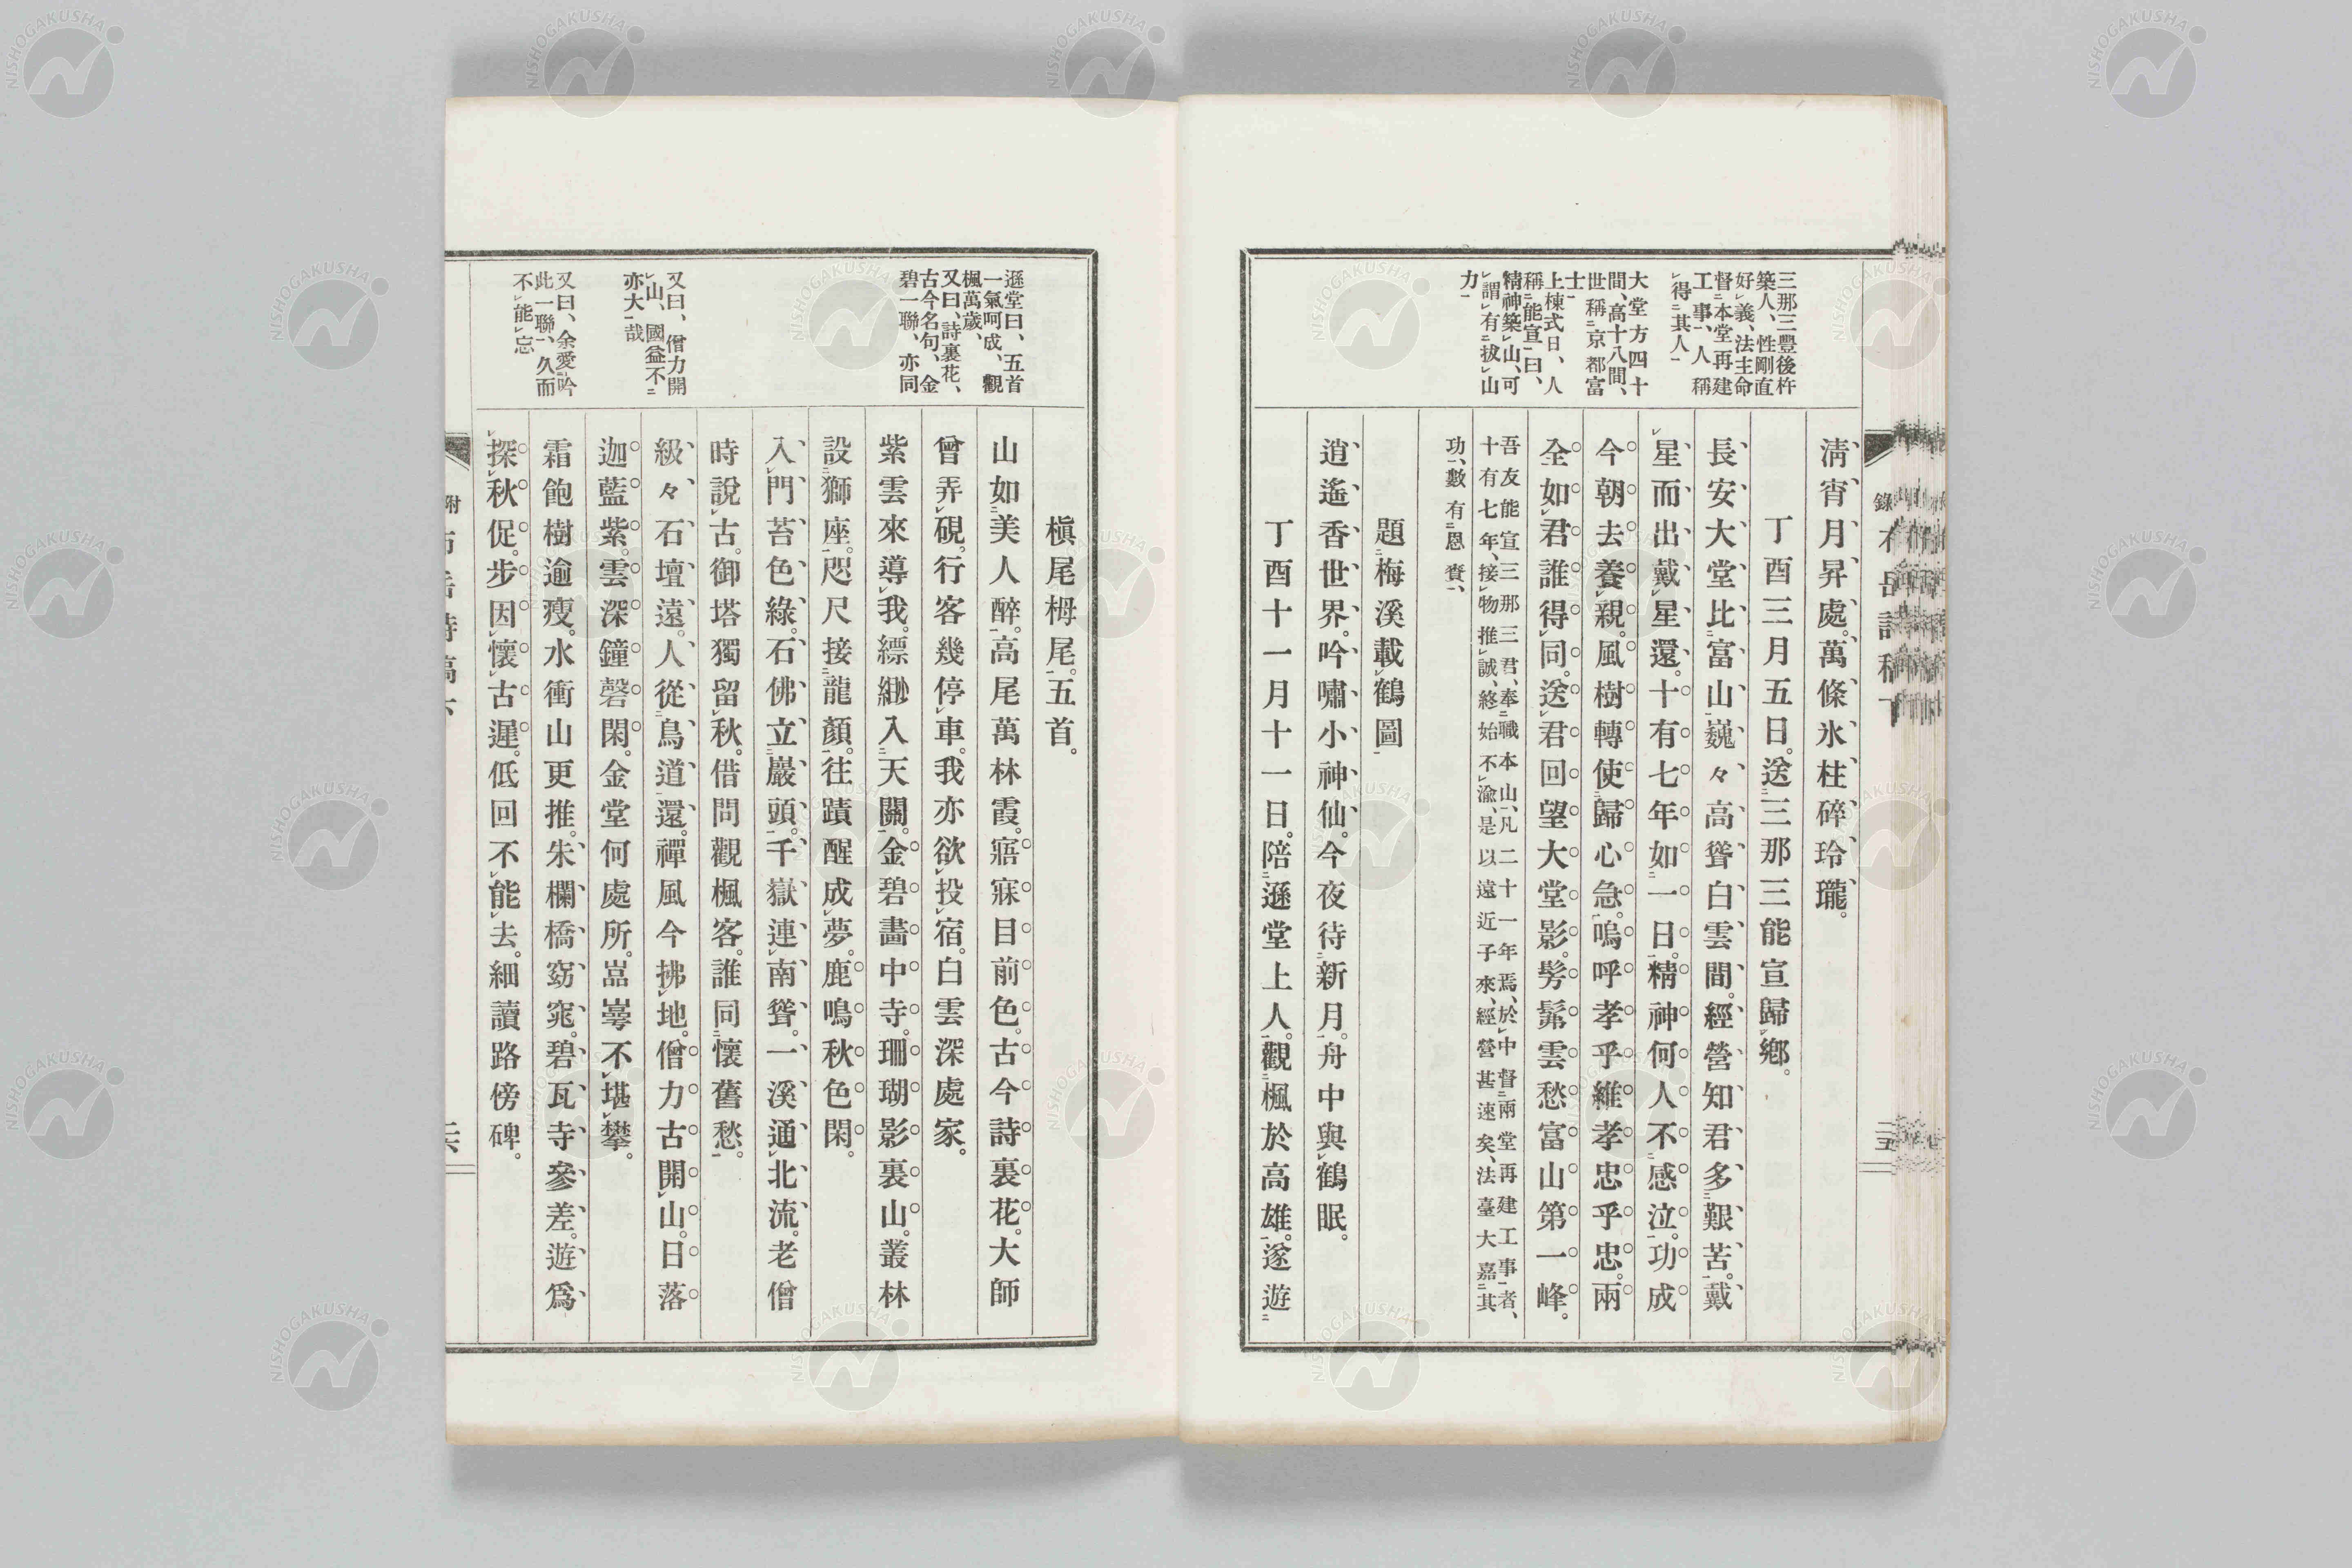 三那三豐後杵
築人、性剛直
好義、法主命
督本堂再建
工事、人稱
得其人
大堂方四十
間、高十八間、
世稱京都富
士
上棟式日、人
稱能宣曰、
精神築山、可
謂有拔山
力
清宵月昇處。萬條氷柱碎玲瓏。
丁酉三月五日。送三那三能宣歸鄕。
長安大堂比富山。巍々高聳白雲間。經營知君多艱苦。戴
星而出戴星還。十有七年如一日。精神何人不感泣。功成
今朝去養親。風樹轉使歸心急。嗚呼孝乎維孝忠乎忠。兩
全如君誰得同。送君回望大堂影。髣髴雲愁富山第一峰。
吾友能宣三那三君、奉職本山、凡二十一年焉、於中督兩堂再建工事者、
十有七年、接物推誠、終始不渝、是以遠近子來、經營甚速矣、法臺大嘉其
功、數有恩賚、
題梅溪載鶴圖
逍遙香世界。吟嘯小神仙。今夜待新月。舟中與鶴眠。
丁酉十一月十一日。陪遜堂上人。觀楓於高雄。遂遊
錄
二五
遜堂曰、五首
一氣呵成、觀
楓萬歲、
又曰、詩裏花、
古今名句、金
碧一聯、亦同
又曰、僧力開
山、國益不
亦大哉
又曰、余愛吟
此一聯、久而
不能忘
槇尾栂尾。五首。
山如美人醉。高尾萬林霞。寤寐目前色。古今詩裏花。大師
曾弄硯。行客幾停車。我亦欲投宿。白雲深處家。
紫雲來導我。縹緲入天關。金碧畵中寺。珊瑚影裏山。叢林
設獅座。咫尺接龍顏。往蹟醒成夢。鹿鳴秋色閑。
入門苔色綠。石佛立巖頭。千嶽連南聳。一溪通北流。老僧
時說古。御塔獨留秋。借問觀楓客。誰同懷舊愁。
級々石壇遠。人從鳥道還。禪風今拂地。僧力古開山。日落
迦藍紫。雲深鐘磬閑。金堂何處所。嵓嶭不堪攀。
霜飽樹逾瘦。水衝山更推。朱欄橋窈窕。碧瓦寺參差。遊爲
探秋促。步因懷古遲。低回不能去。細讀路傍碑。
附